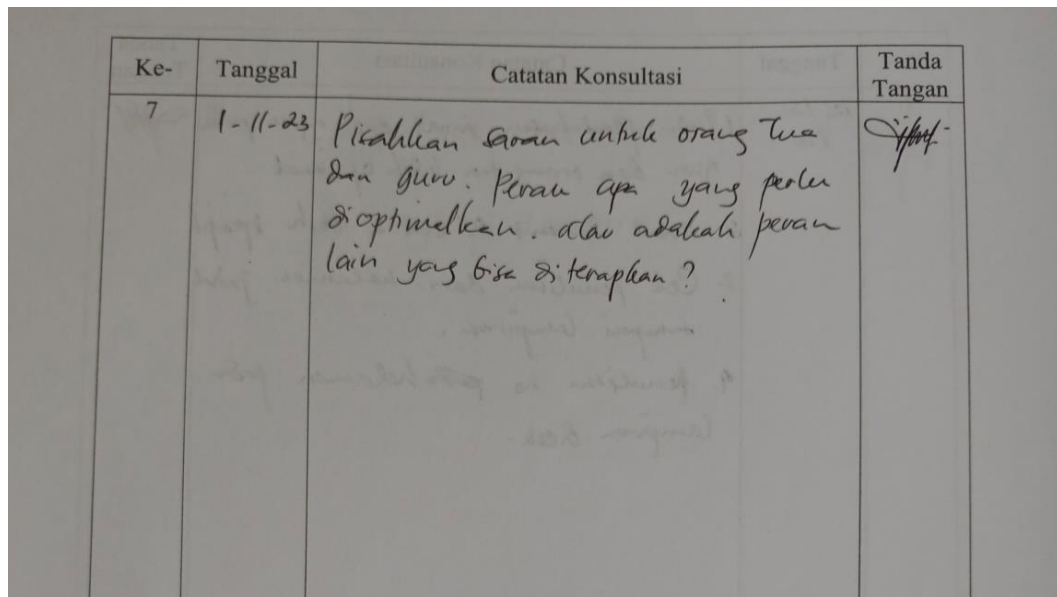 Ke- Tanggal Catatan Konsultasi Tanda Tangan
7 1-11-23 Pisahkan saran untuk orang Tua
dan guru. Peran apa yang perlu
dioptimalkan. atau adakah peran
lain yang bisa diterapkan?